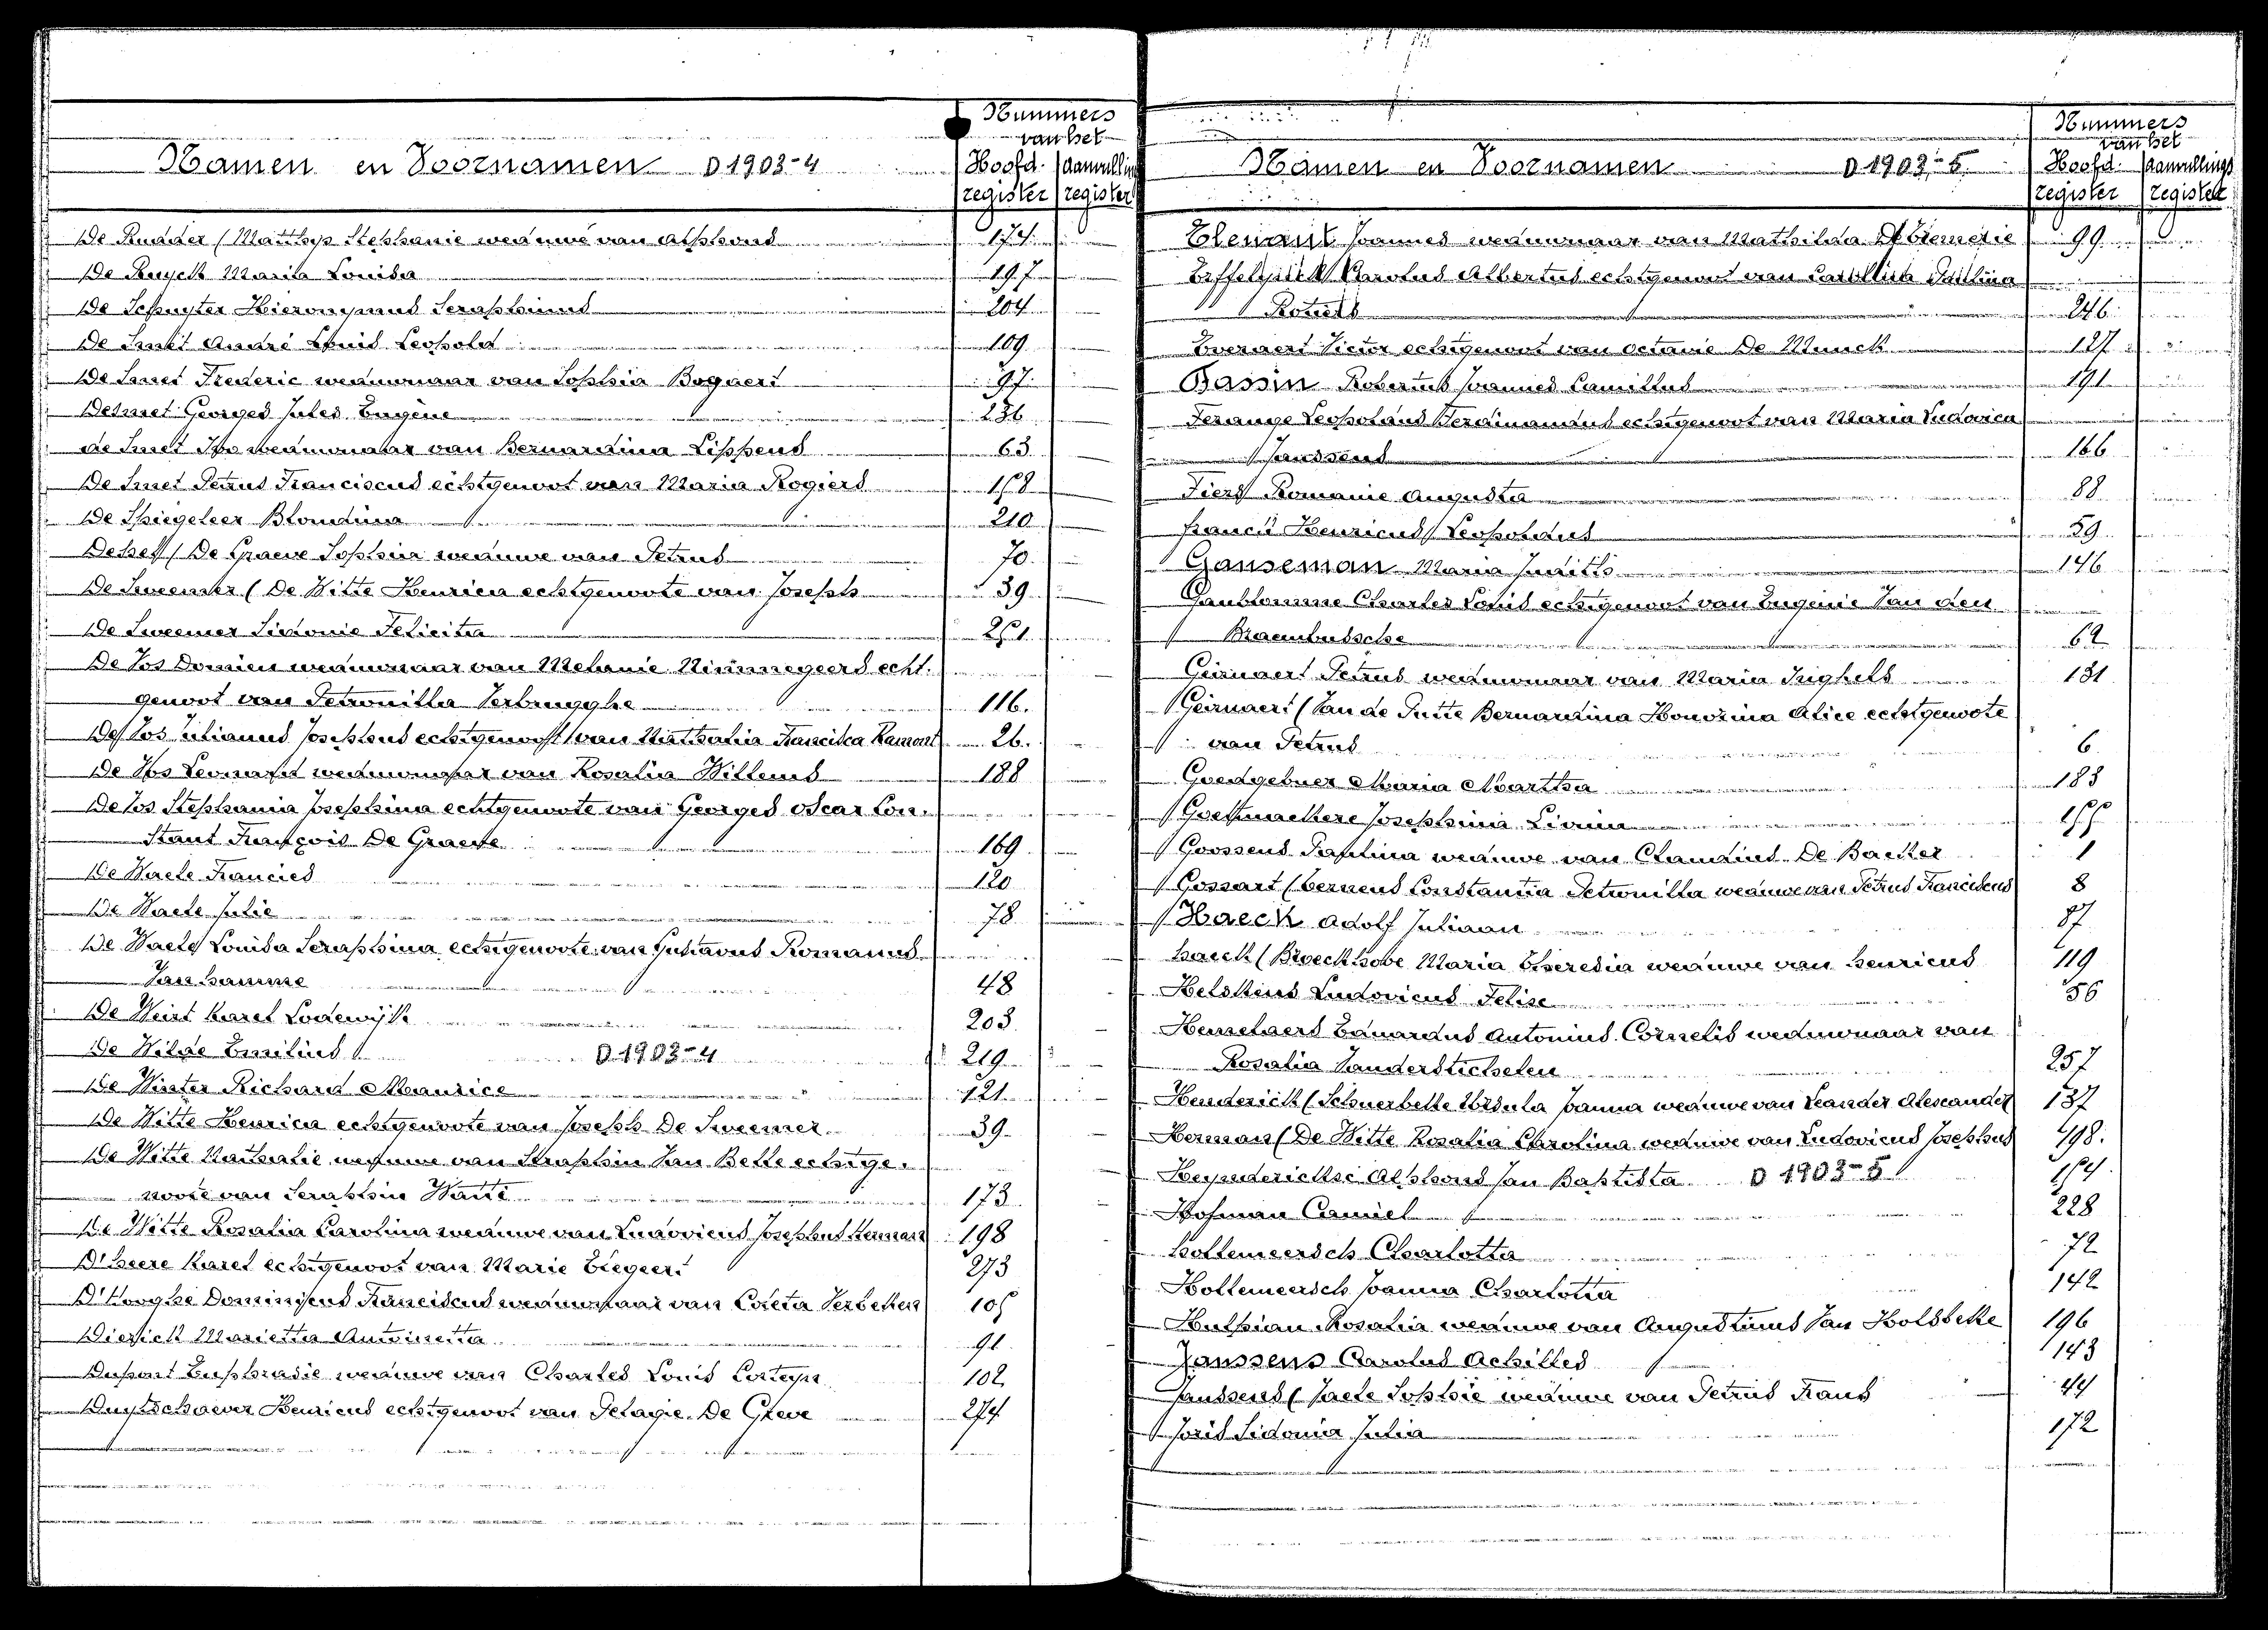 Nummers
van het
Namen en Voornamen D 1903-4
Hoofd- register
aanvulling register
De Rudder (Matthys Stephanie weduwe van Alphons 174
De Ruyck Maria Louisa 197
De Schuyter Hieronymus Seraphinus 204
De Smet André Louis Leopold 109
De Smet Frederic weduwnaar van Sophia Bogaert 97
Desmet Georges Jules Eugène 236
de Smet Ivo weduwnaar van Bernardina Lippens 63
De Smet Petrus Franciscus echtgenoot van Maria Rogiers 158
De Spiegeleer Blondina 210
De (De Graeve Sophia weduwe van Petrus 70
De Sweemer (De Witte Henrica echtgenoote van Joseph 39
De Sweemer Sidonie Felicita 251
De Vos Domien weduwnaar van Melanie Nimmegeers echt-
genoot van Petronilla Verbrugghe 116.
De Vos Julianus Josephus echtgenoot van Nathalia Francisca Ramont 26.
De Vos Leonard weduwnaar van Rosalia Willems 188
De Vos Stephania Josephina echtgenoote van Georges Oscar Con-
stant François De Graeve 169
De Waele Francies 120
De Waele Julie 78
De Waele Louisa Seraphina echtgenoote van Gustavus Romanus
Van Damme 48
De Weirt Karel Lodewijk 203
De Wilde Emilius D. 1903-4 219
De Winter Richard Maurice 121
De Witte Henrica echtgenoote van Joseph De Sweemer 39
De Witte Nathalie weduwe van Seraphin Van Belle echtge-
noote van Seraphin Waute 173
De Witte Rosalia Carolina weduwe van Ludovicus Josephus Herman 198
D'heere Karel echtgenoot van Marie Stegeer 273
D'Hooghe Dominicus Franciscus weduwnaar van Coleta Verbeken 105
Dierick Marietta Antoinetta 91
Dupont Euphrasie weduwe van Charles Louis Corteyn 102
Duytschaever Henricus echtgenoot van Pelagie De Greve 274
Nummers
van het
Namen en Voornamen D 1903-5
Hoofd- register
aanvullings register
Elenaut Joannes weduwnaar van Mathilda 99
Effelinck Carolus Albertus echtgenoot van Paulina
246
Everaert Victor echtgenoot van Octavie De Munck 127
Fassin Robertus Joannes Camillus 191
Ferange Leopoldus Ferdinandus echtgenoot van Maria Ludovica
Janssens 166
Fiers Romanie Augusta 88
Franck Henricus Leopoldus 59
Ganseman Maria Judith 146
Gaublomme Charles Louis echtgenoot van Eugenie Van den
Braembussche 62
Geirnaert Petrus weduwnaar van Maria Inghels 131
Geirnaert (Van de Putte Bernardina Honorina Alice echtgenoote
van Petrus 6
Goedgebuer Maria Martha 183
Goethaelkere Josephina Livina 155
Goossens Paulina weduwe van Clemens De Backer 1
Gossart (Bernens Constantia Petronilla weduwe van Petrus Franciscus 8
Haeck Adolf Juliaan 87
Haeck (Broeckhove Maria Theresia weduwe van Henricus 119
Helskens Ludovicus Felix 56
Hemelaers Eduardus Antonius Cornelis weduwnaar van
Rosalia Vanderstichelen 257
Henderick (Schuerbelle Ursula Joanna weduwe van Leander Alexander 137
Herman (De Witte Rosalia Carolina weduwe van Ludovicus Josephus 198.
Heynderickx Alphons Jan Baptista D 1903-5 154
Hofman Camiel 228
Hollemeersch Charlotta 72
Hollemeersch Joanna Charlotta 142
Hulpiau Rosalia weduwe van Augustinus Van Holsbeke 196
Janssens Carolus Achilles 143
Janssens (Jaele Sophie weduwe van Petrus Frans 44
Joris Sidonia Julia 172